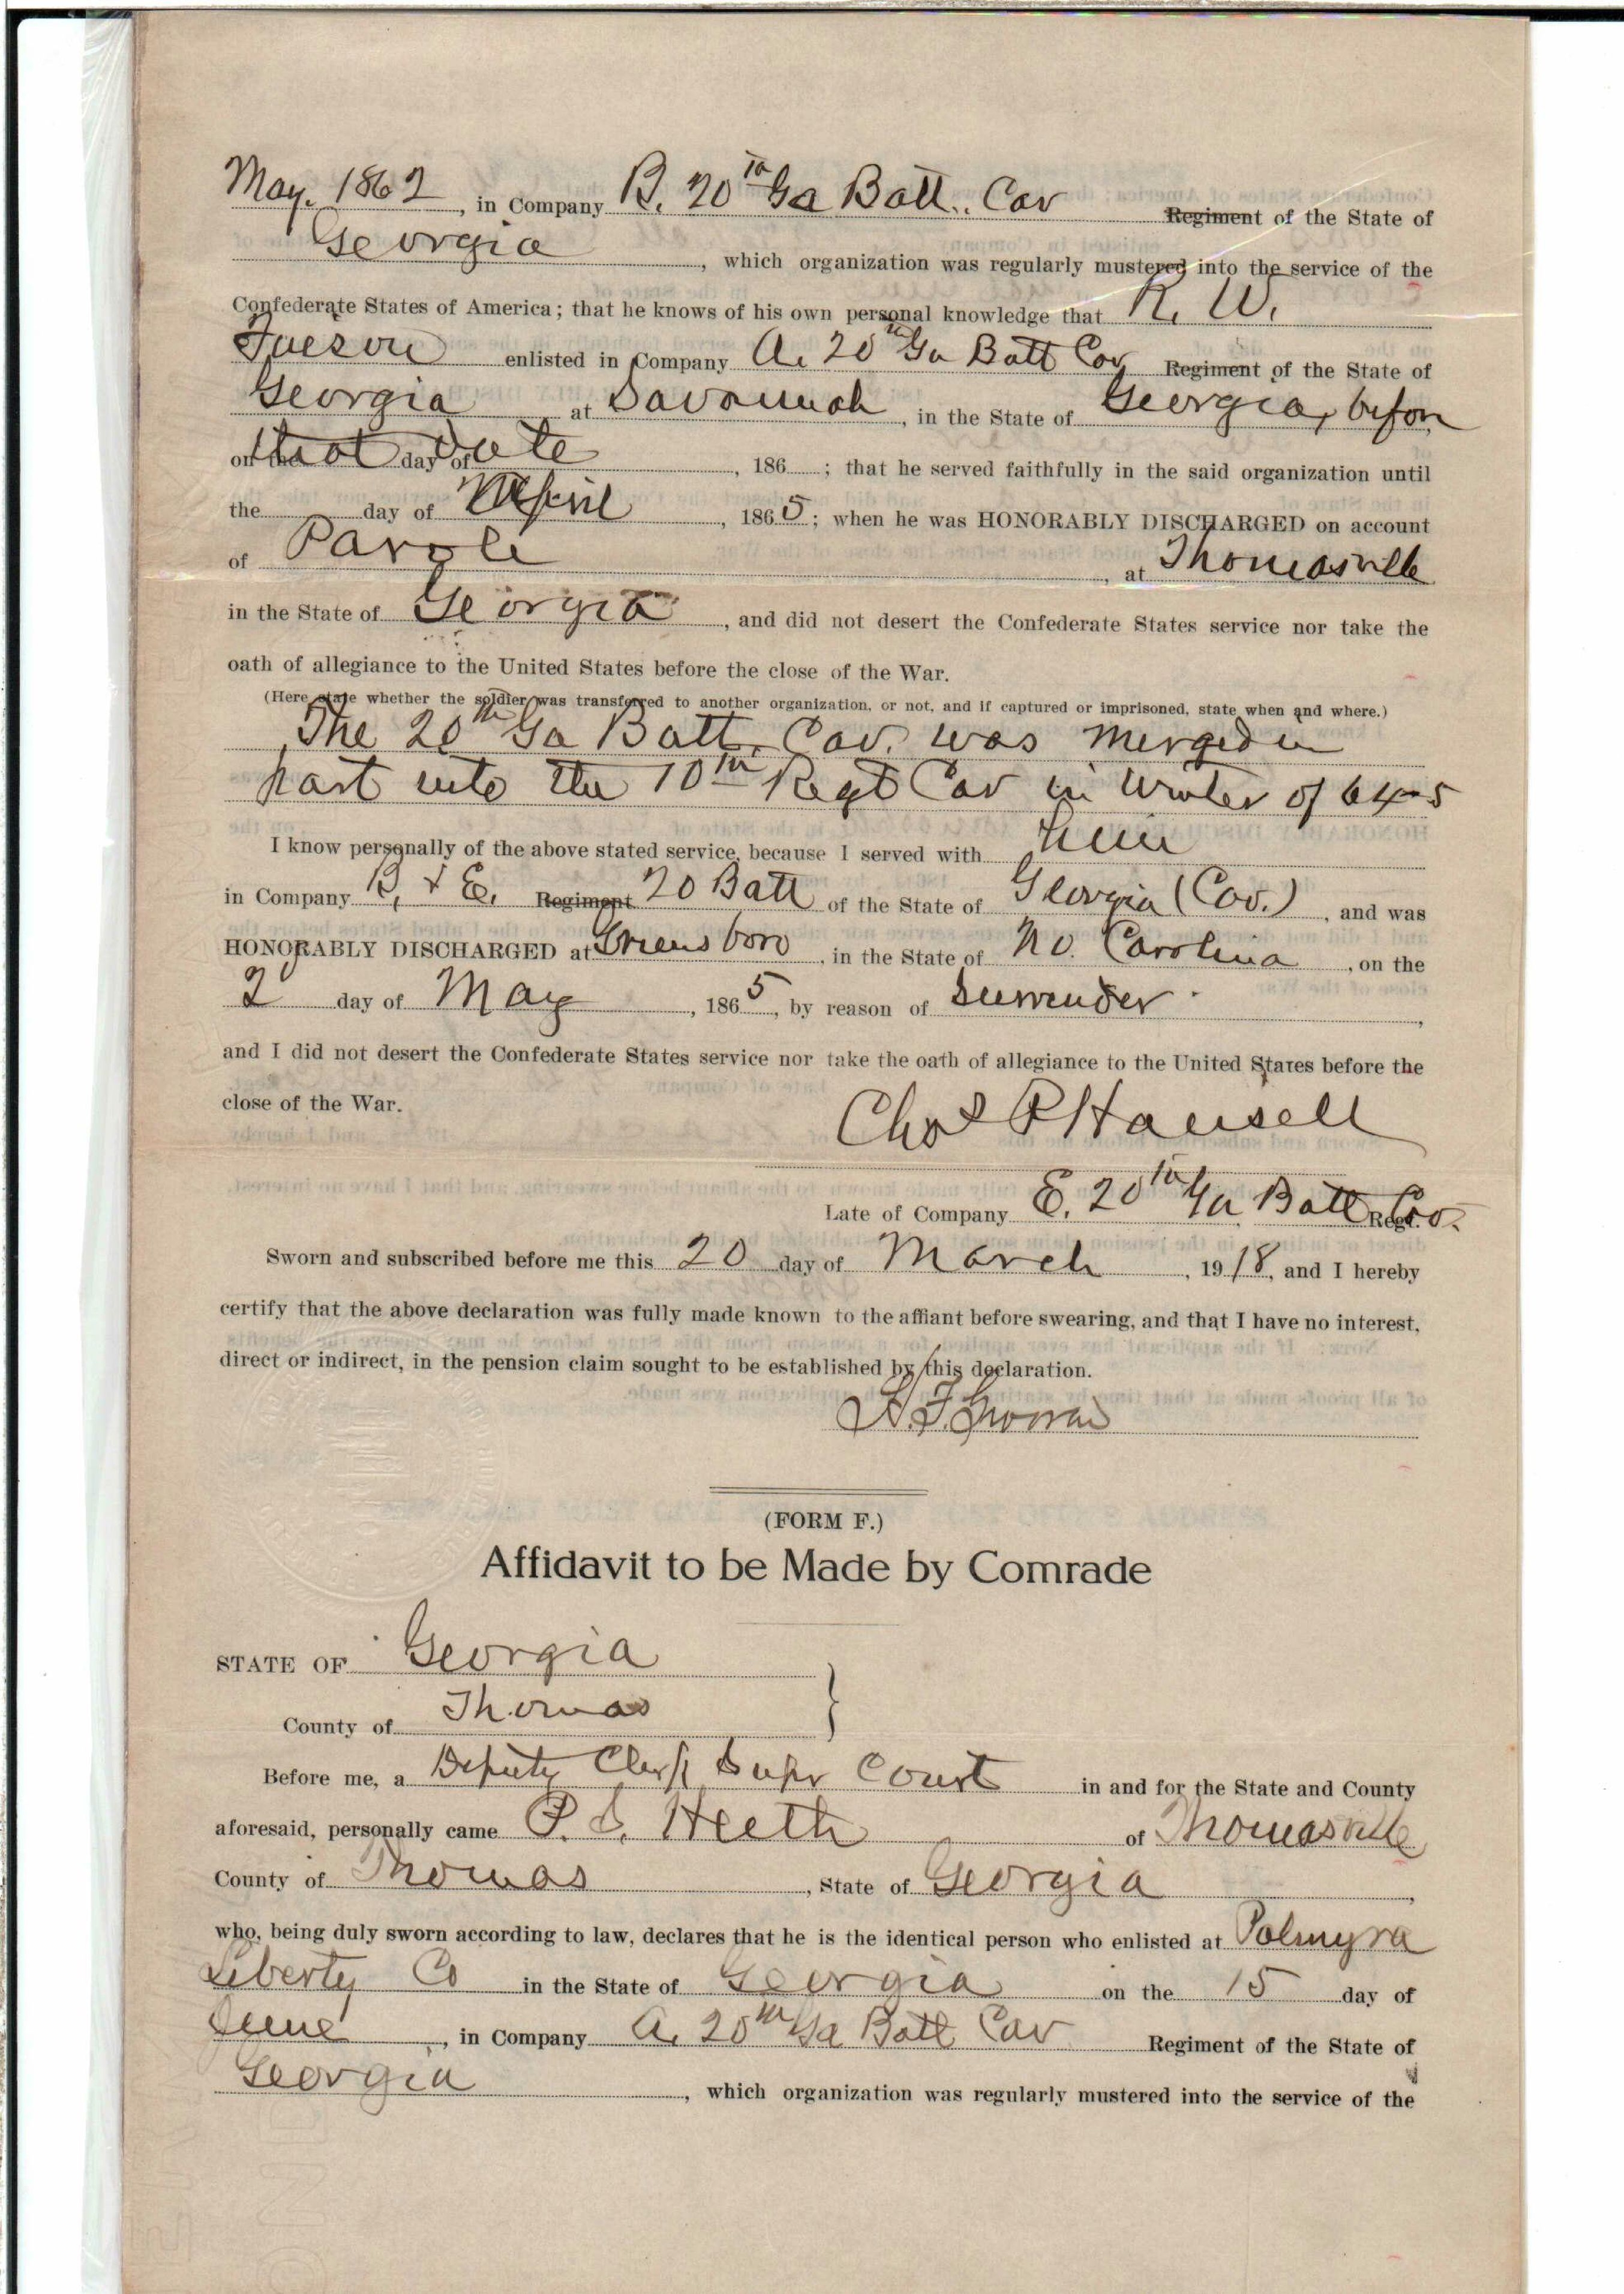 May. 1862, in Company B. 20th Ga Batt. Cav Regiment of the State of
Georgia, which organization was regularly mustered into the service of the
Confederate States of America; that he knows of his own personal knowledge that R. W.
enlisted in Company A. 20th Ga Batt Cav Regiment of the State of
Georgia at Savannah, in the State of Georgia, before
on the that day of date, 186 ; that he served faithfully in the said organization until
the day of April, 1865; when he was HONORABLY DISCHARGED on account
of Parole, at Thomasville
in the State of Georgia, and did not desert the Confederate States service nor take the
oath of allegiance to the United States before the close of the War.
(Here state whether the soldier was transferred to another organization, or not, and if captured or imprisoned, state when and where.)
The 20th Ga Batt. Cav. was merged in
part into the 10th Regt Cav in Winter of 64-5
I know personally of the above stated service, because I served with him
in Company B, & E. Regiment 20 Batt of the State of Georgia (Cav.), and was
HONORABLY DISCHARGED at Greensboro, in the State of No. Carolina, on the
2d day of May, 1865, by reason of Surrender.,
and I did not desert the Confederate States service nor take the oath of allegiance to the United States before the
close of the War.
Chas P Hansell
Late of Company E. 20th Ga Batt Regt. Cav.
Sworn and subscribed before me this 20 day of March, 1918, and I hereby
certify that the above declaration was fully made known to the affiant before swearing, and that I have no interest,
direct or indirect, in the pension claim sought to be established by this declaration.
(FORM F.)
Affidavit to be Made by Comrade
STATE OF Georgia
County of Thomas
Before me, a Deputy Clerk Supr Court in and for the State and County
aforesaid, personally came P. S. Heeth of Thomasville
County of Thomas, State of Georgia,
who, being duly sworn according to law, declares that he is the identical person who enlisted at Palmyra
Liberty Co in the State of Georgia on the 15 day of
June, in Company A. 20th Ga Batt Cav Regiment of the State of
Georgia, which organization was regularly mustered into the service of the